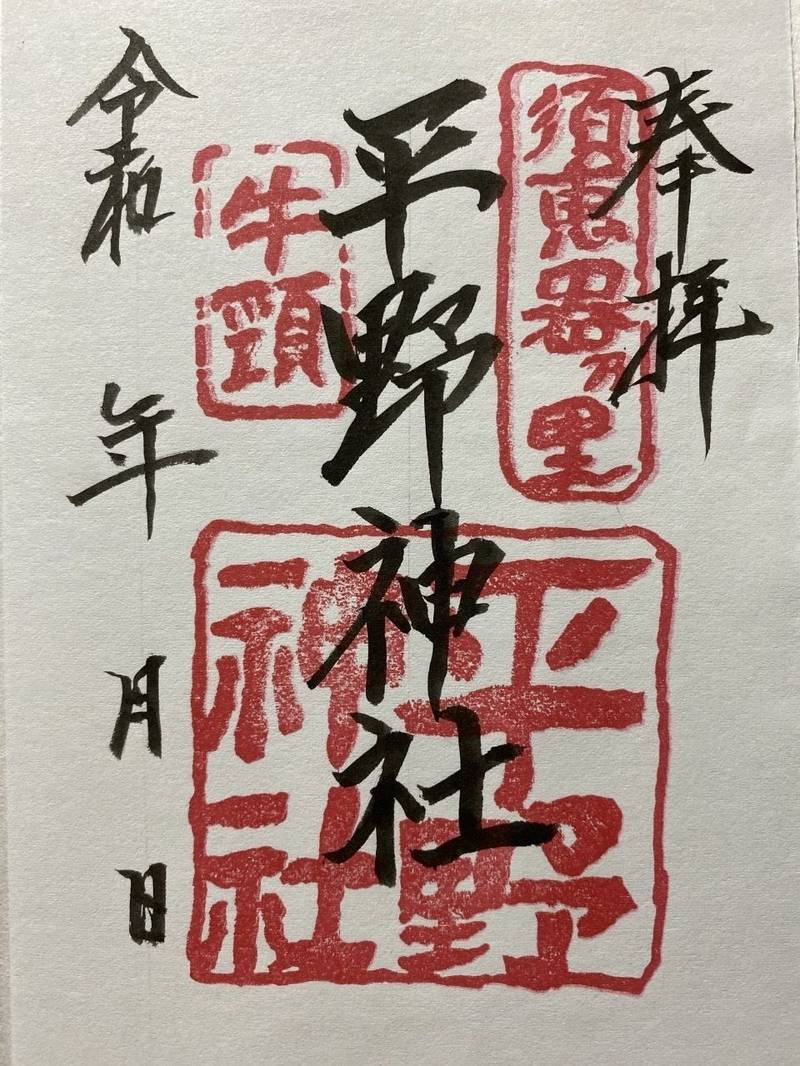 奉拝
須恵器乃里
平野神社
平野
神社
牛頸
令和 年 月 日